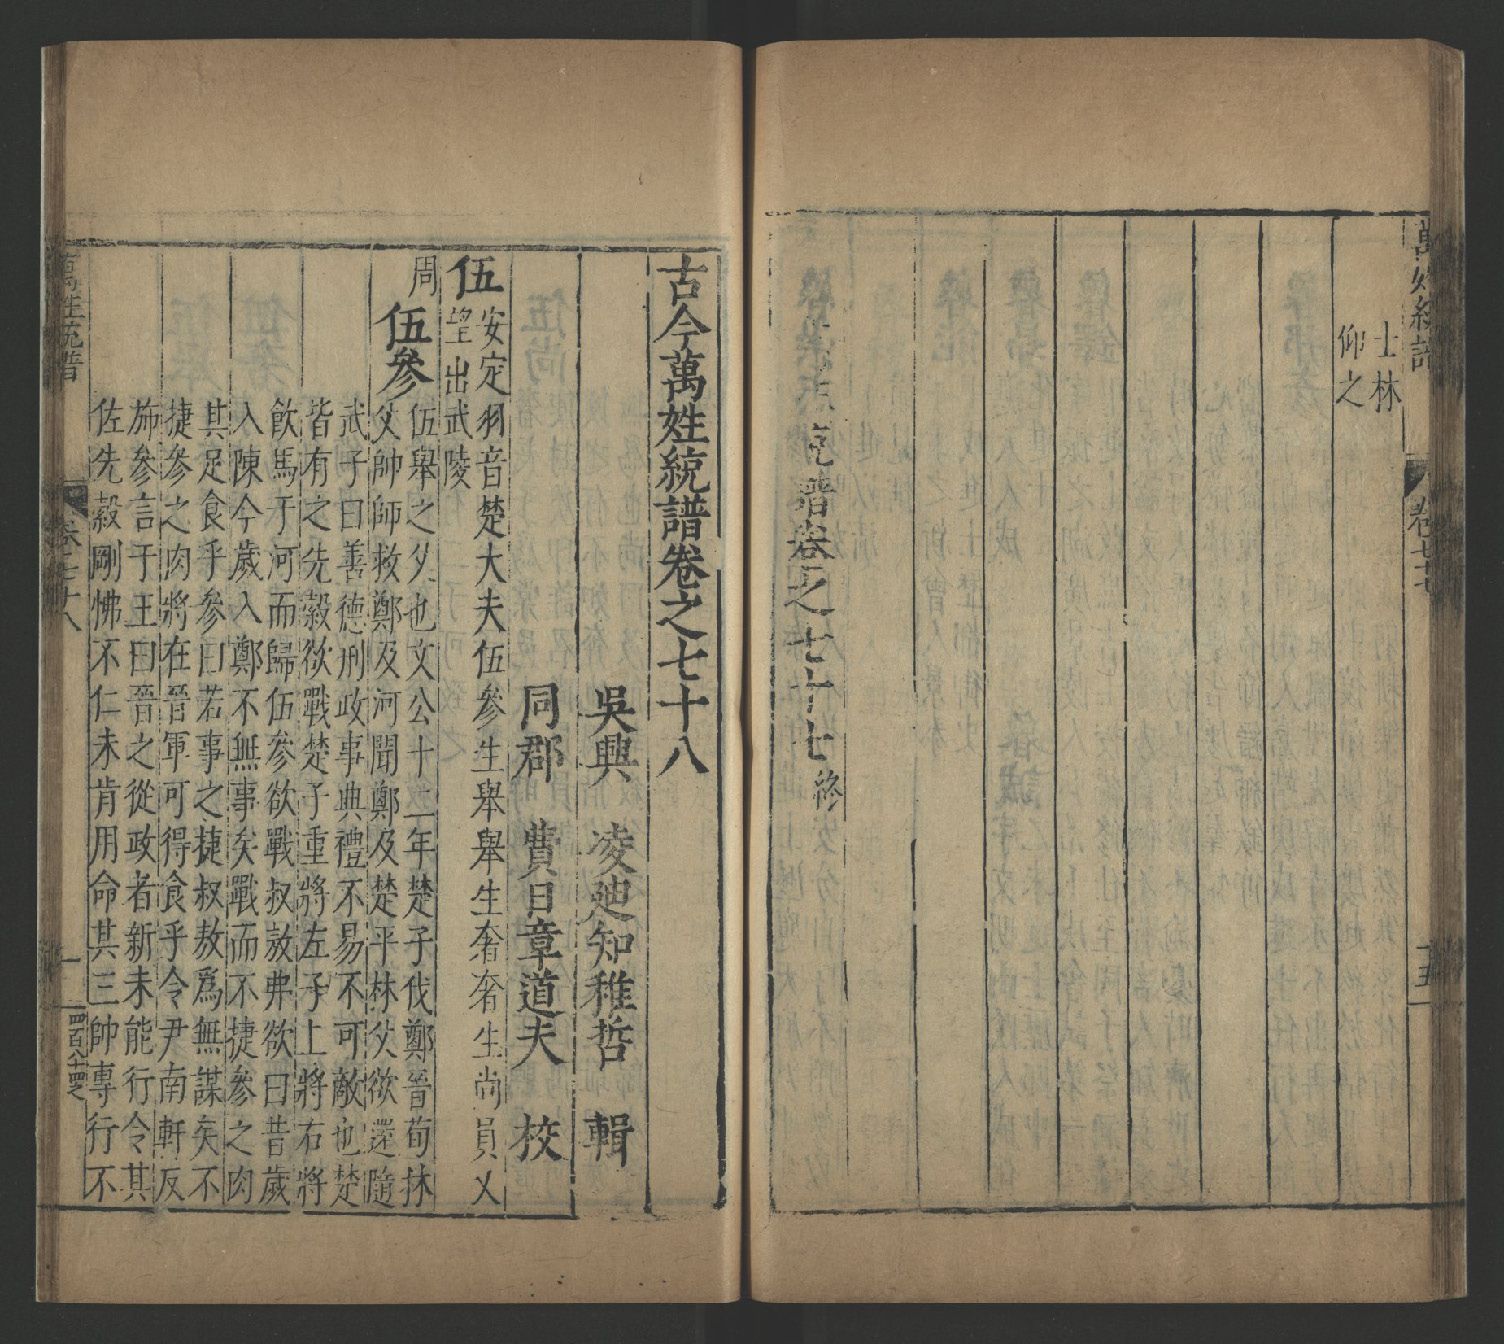 萬姓統譜
卷七十七
十五
士林
仰之
統譜卷之七十七終
古今萬姓統譜卷之七十八
吳興 凌廸知稚哲 輯
同郡 費日章道夫 校
伍
安定羽音楚大夫伍參生舉舉生奢奢生尚員又
望出武陵
周
伍參
伍舉之父也文公十二年楚子伐鄭晉荀林
父帥師救鄭及河聞鄭及楚平林父欲還隨
武子曰善德刑政事典禮不易不可敵也楚
皆有之先縠欲戰楚子重將左子上將右將
飲馬于河而歸伍參欲戰叔敖弗欲曰昔歲
入陳今歲入鄭不無事矣戰而不捷參之肉
其足食乎參曰若事之捷叔敖爲無謀矣不
捷參之肉將在晉軍可得食乎令尹南軒反
斾參言于王曰晉之從政者新未能行令其
佐先縠剛愎不仁未肯用命其三帥專行不
萬姓統譜
卷七十八
一
四百八十四